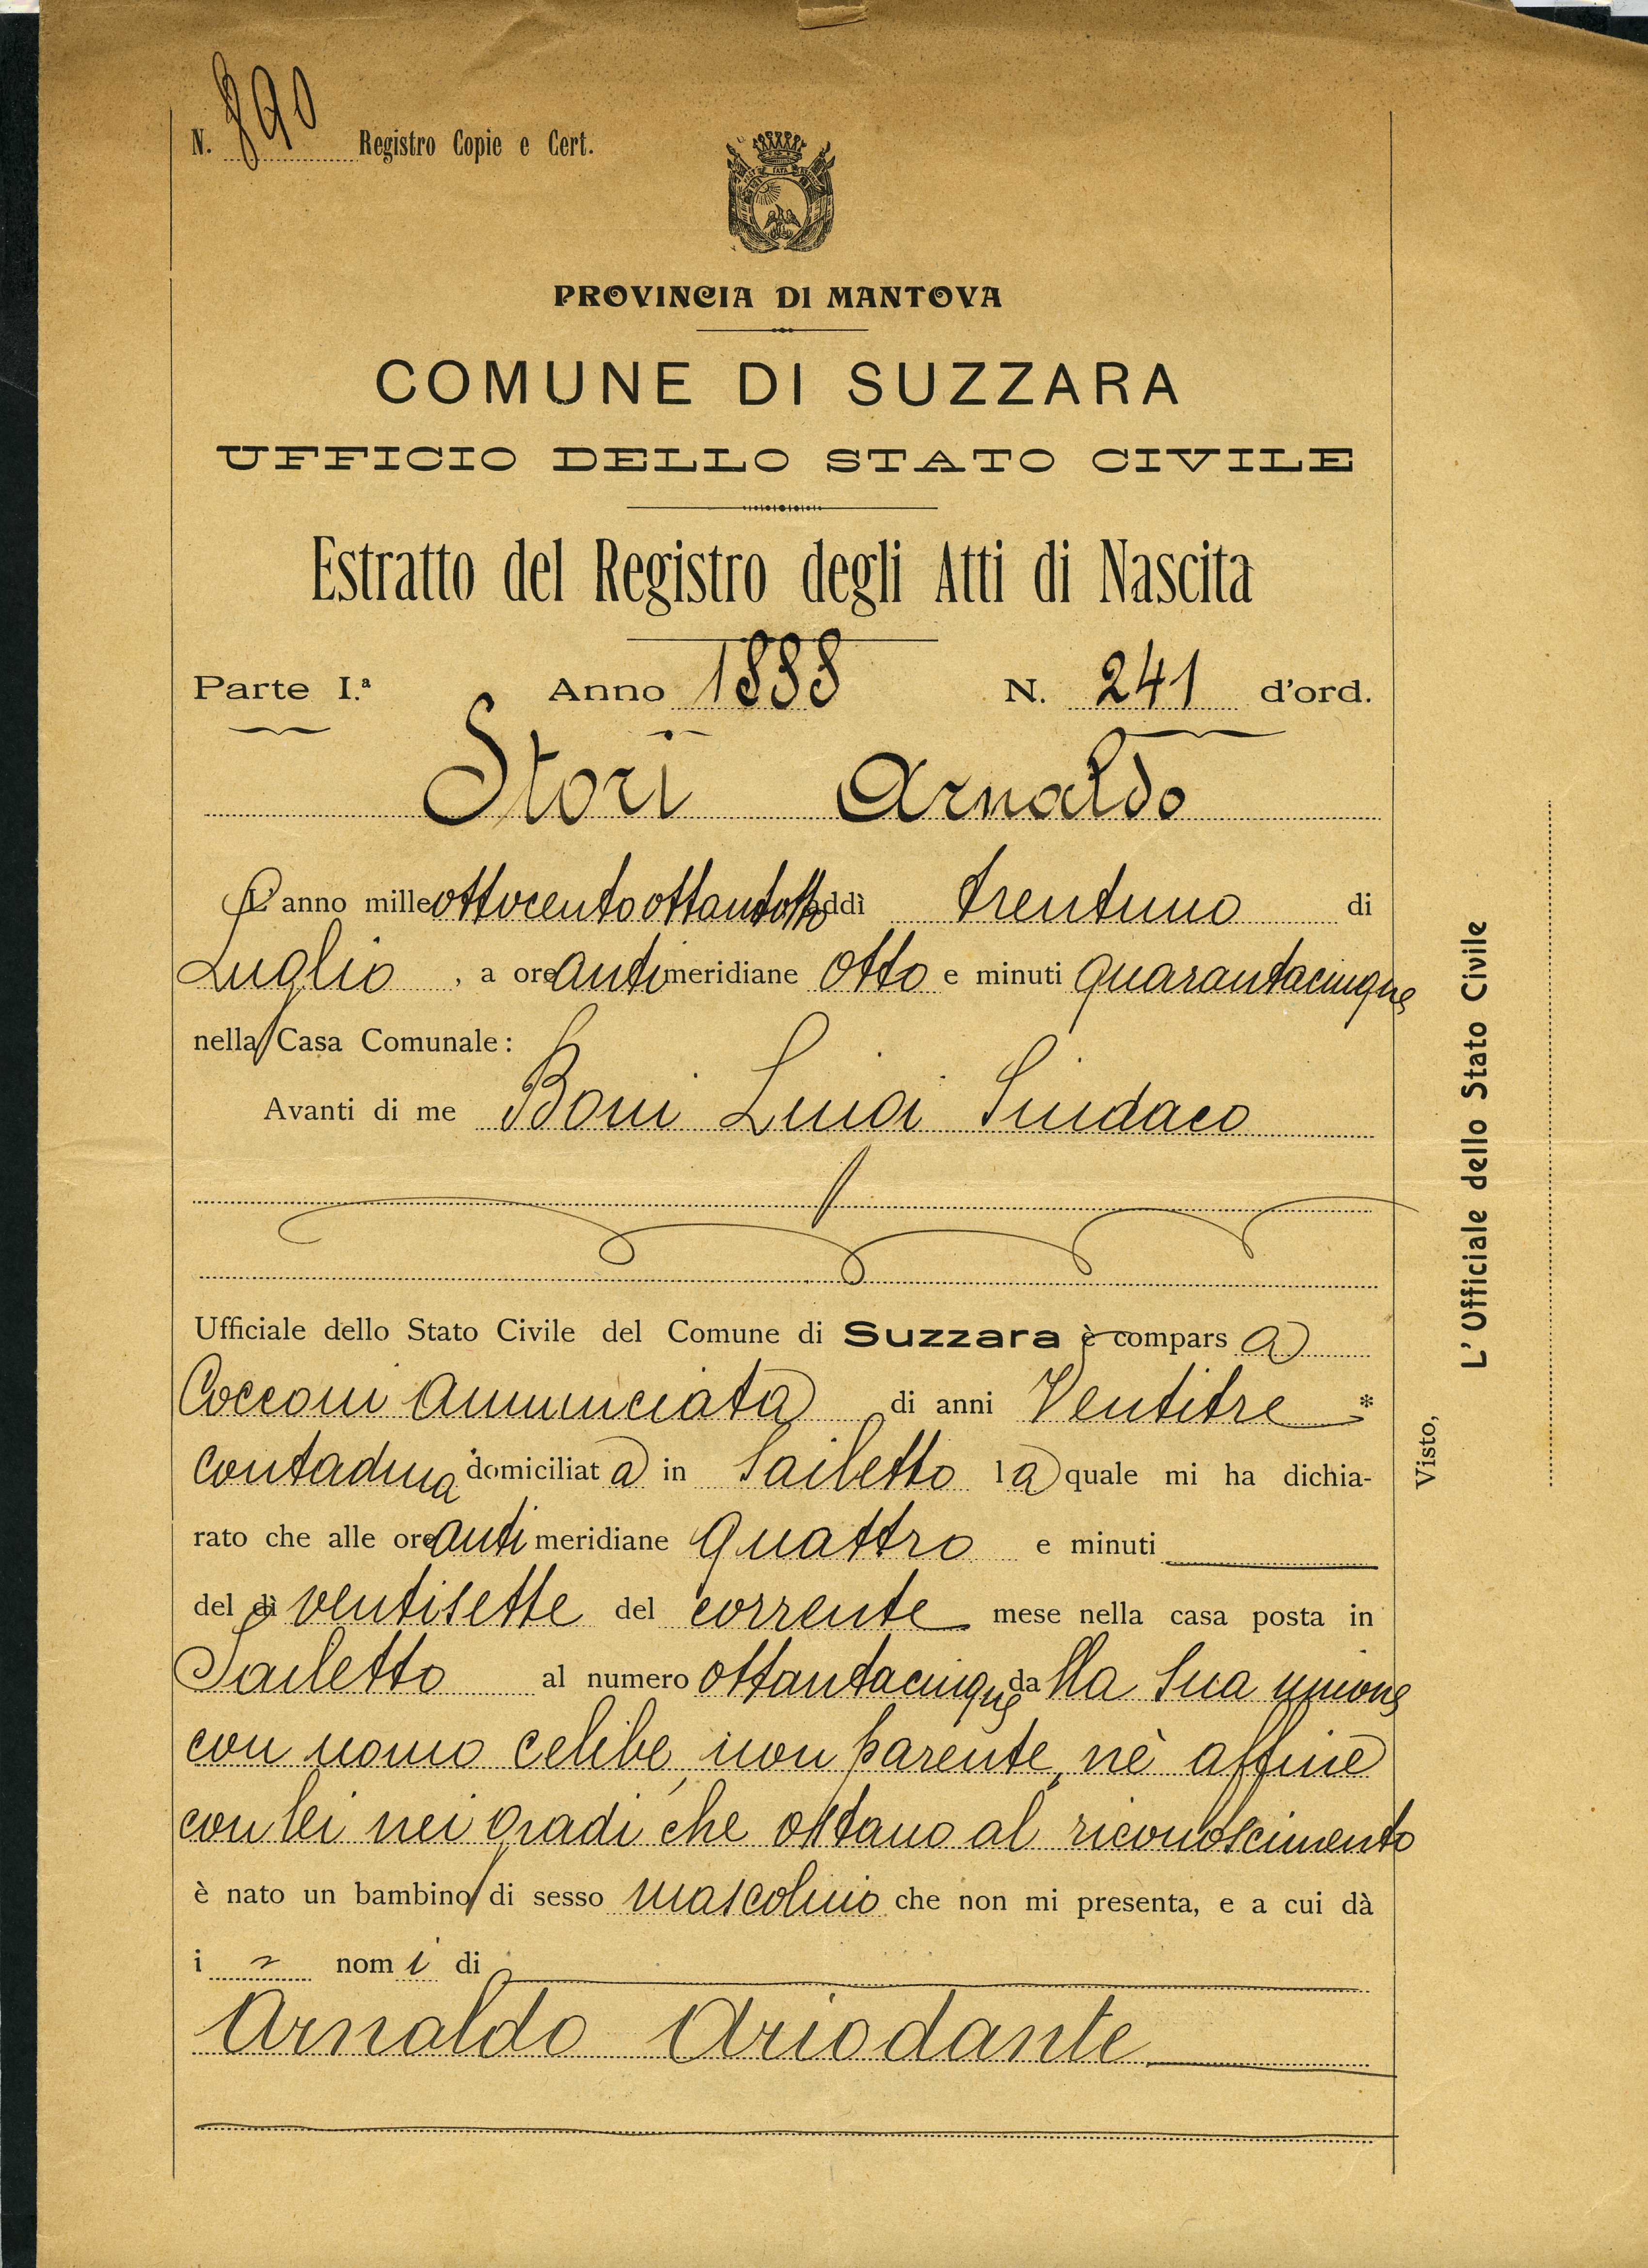 N. 890 Registro Copie e Cert.
PROVINCIA DI MANTOVA
COMUNE DI SUZZARA
UFFICIO DELLO STATO CIVILE
Estratto del Registro degli Atti di Nascita
Parte I.ª Anno 1888 N. 241 d'ord.
Stori Arnaldo
L'anno milleottocentoottantotto addì trentuno di
Luglio, a ore antimeridiane otto e minuti quarantacinque
nella Casa Comunale:
Avanti di me Boni Luigi Sindaco
Ufficiale dello Stato Civile del Comune di Suzzara è comparsa
Cocconi Annunciata di anni Ventitre *
Contadina domiciliata in Sailetto la quale mi ha dichia-
rato che alle ore antimeridiane quattro e minuti
del dì ventisette del corrente mese nella casa posta in
Sailetto al numero ottantacinque dalla sua unione
con uomo celibe, non parente, nè affine
con lei nei gradi che ostano al riconoscimento
è nato un bambino di sesso mascolino che non mi presenta, e a cui dà
i nomi di
Arnaldo Ariodante
Visto,
L'Ufficiale dello Stato Civile